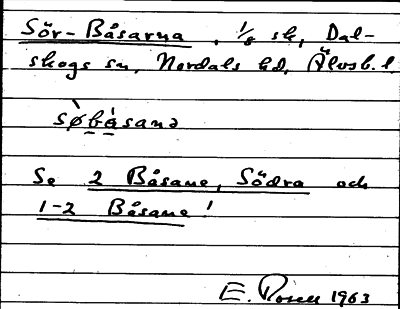 Sör-Båsarna, 1/8 sk, Dal-
skogs sn, Nordals hd, Älvsb. l.
sø̀båsanə
Se 2 Båsane, Södra och
1-2 Båsane!
E. Rosell 1963